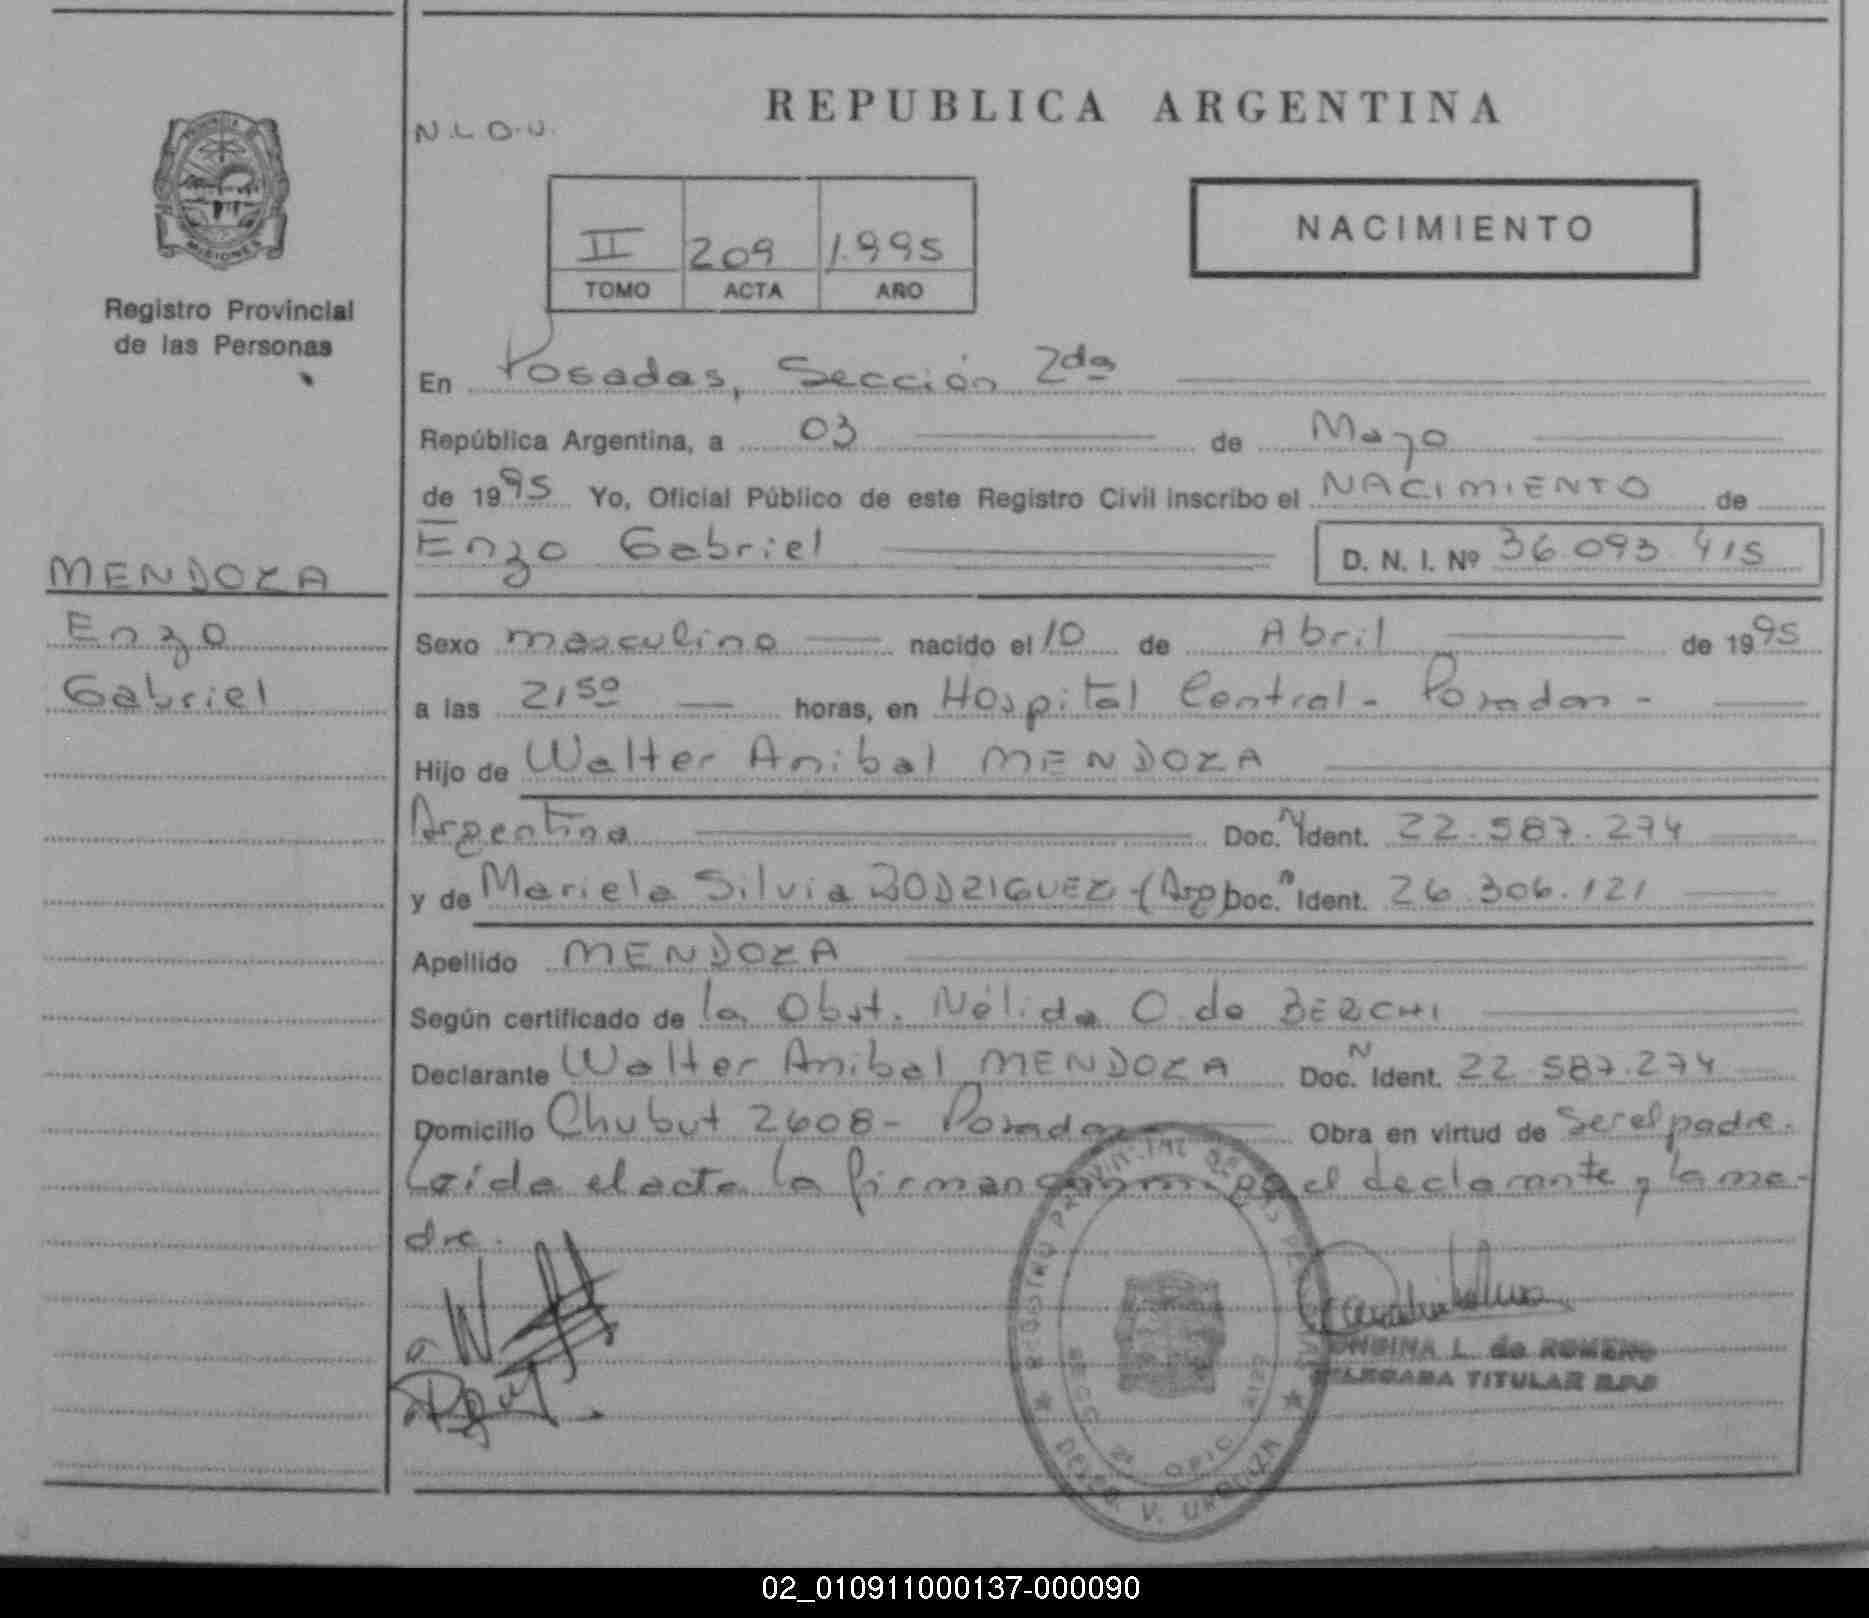 REPUBLICA ARGENTINA
N.L.O.U.
PROVINCIA DE
MISIONES
Registro Provincial
de las Personas
II 209 1.995
TOMO ACTA AÑO
NACIMIENTO
En Posadas, Sección 2da
República Argentina, a 03 de Mayo
de 1995 Yo, Oficial Público de este Registro Civil inscribo el NACIMIENTO de
Enzo Gabriel D. N. I. Nº 36.093.415
MENDOZA
Enzo
Gabriel
Sexo masculino nacido el 10 de Abril de 1995
a las 21,50 horas, en Hospital Central - Posadas -
Hijo de Walter Anibal MENDOZA
Argentina Doc. N Ident. 22.587.274
y de Mariela Silvia RODRIGUEZ - (Arg) Doc. n Ident. 26.306.121
Apellido MENDOZA
Según certificado de la Obst. Nélida O. de BERCHI
Declarante Walter Anibal MENDOZA Doc. N Ident. 22.587.274
Domicilio Chubut 2608 - Posadas Obra en virtud de ser el padre.
Leída el acta la firman conmigo el declarante y la ma-
dre.
REGISTRO PROVINCIAL DE LAS PERSONAS
SECC 2ª OFIC
V. URQUIZA
L. de ROMERO
DELEGADA TITULAR R.P.P
02_010911000137-000090